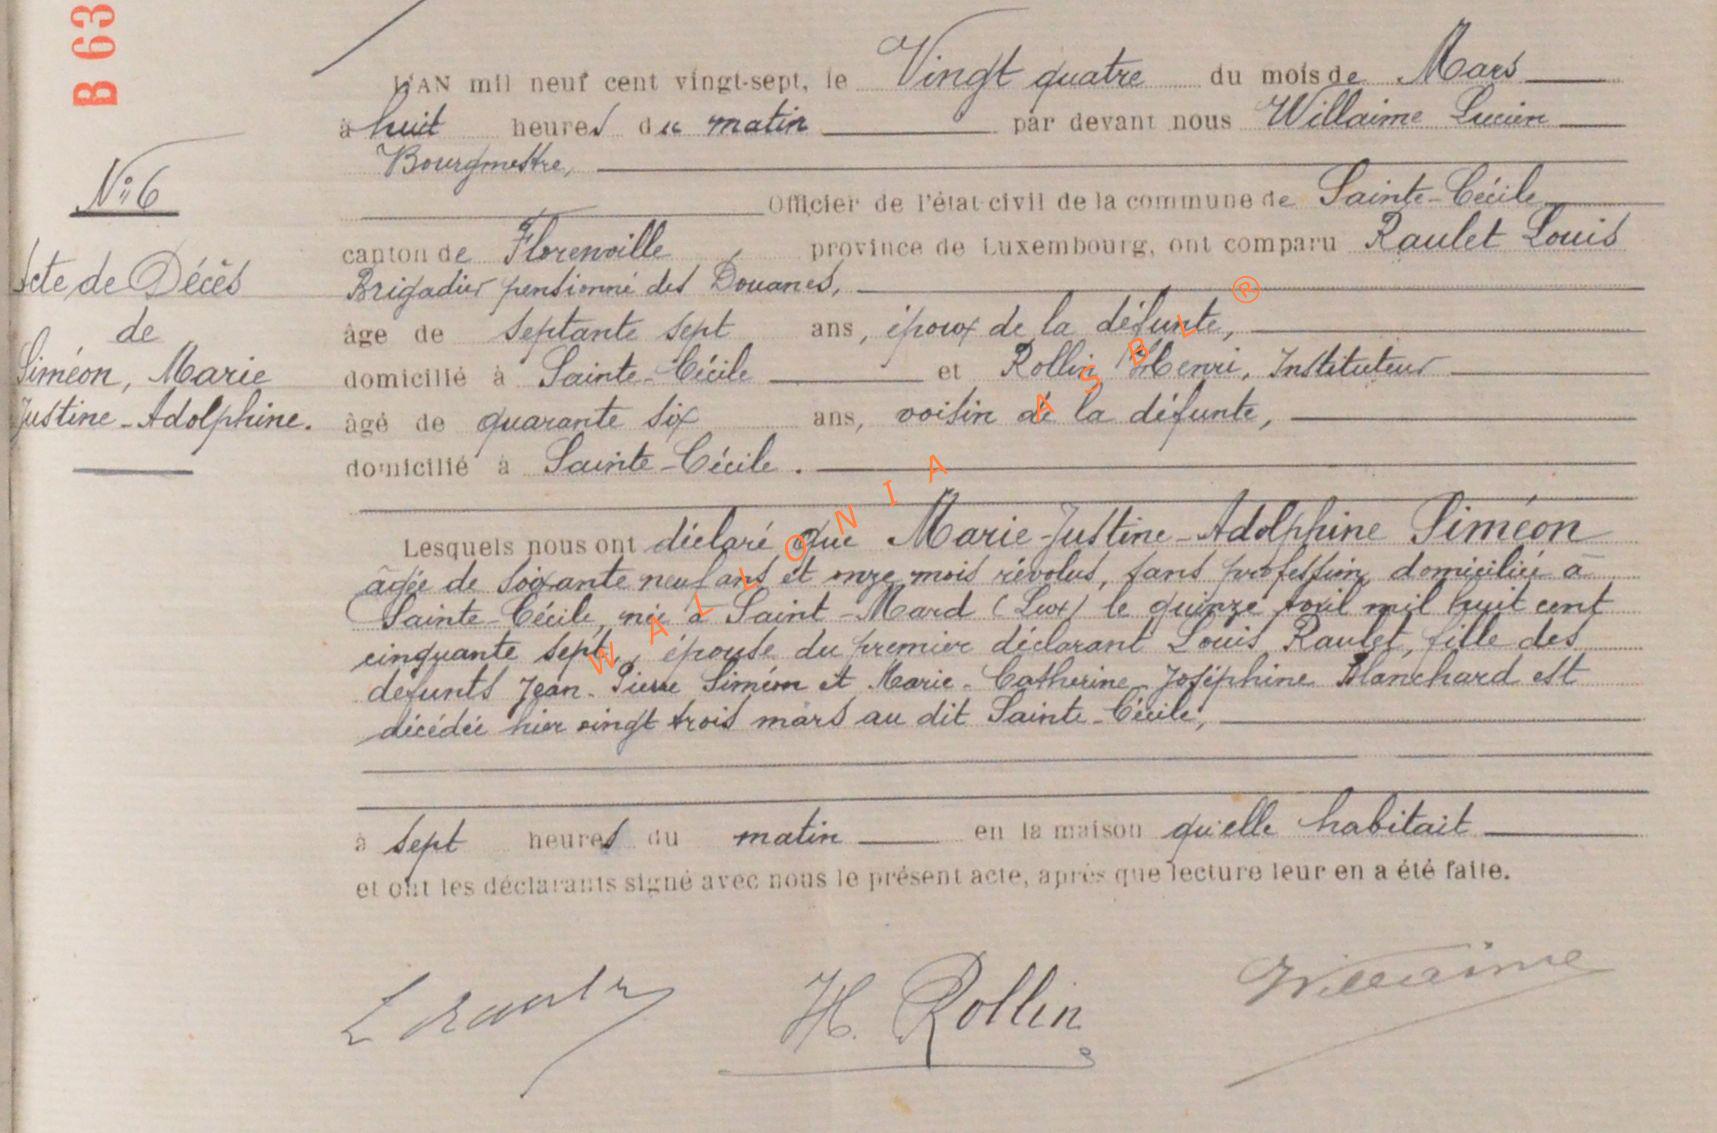 B 63
L'AN mil neuf cent vingt-sept, le Vingt quatre du mois de Mars
à huit heures du matin par devant nous Willaime Lucien
Bourgmestre,
Officier de l'état-civil de la commune de Sainte-Cécile
canton de Florenville province de Luxembourg, ont comparu Raulet Louis
Brigadier pensionné des Douanes,
âge de septante sept ans, époux de la défunte,
domicilié à Sainte-Cécile et Rollin Henri, Instituteur
âgé de quarante six ans, voisin de la défunte,
domicilié à Sainte-Cécile.
N° 6
Acte de Décès
de
Siméon, Marie
Justine-Adolphine.
Lesquels nous ont déclaré que Marie-Justine-Adolphine Siméon
âgée de soixante neuf ans et onze mois révolus, sans profession, domiciliée à
Sainte-Cécile, née à Saint-Mard (Lux) le quinze avril mil huit cent
cinquante sept, épouse du premier déclarant Louis Raulet, fille des
defunts Jean-Pierre Siméon et Marie-Catherine-Joséphine Blanchard est
décédée hier vingt trois mars au dit Sainte-Cécile,
à sept heures du matin en la maison qu'elle habitait
et ont les déclarants signé avec nous le présent acte, après que lecture leur en a été faite.
L Raulet H. Rollin Willaime
WALLONIA ASBL ®